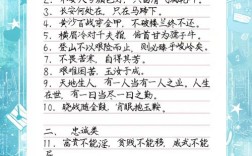 3. 长安何处在，只在马蹄下。
4. 黄沙百战穿金甲，不破楼兰终不还。
5. 横眉冷对千夫指，俯首甘为孺子牛。
6. 登山不以艰险而止，则必臻乎峻岭矣。
7. 不畏苦寒，自得芬芳。
8. 艰难困苦，玉汝于成。
9. 天地生人，有一人当有一人之业，人生在
世，有一日当尽一日之勤。
10. 晓战随金鼓，宵眠抱玉鞍。
二、忠诚类
11. 富贵不能淫，贫贱不能移，威武不能